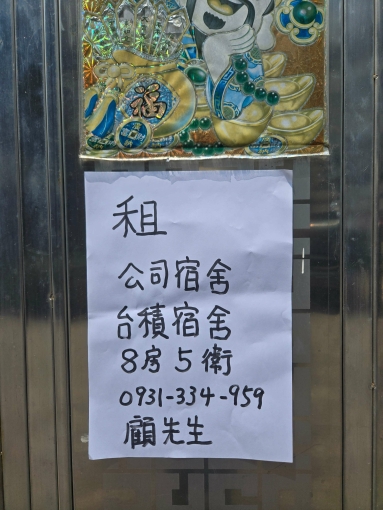 福
租
公司宿舍
台積宿舍
8房5衛
0931-334-959
顧先生